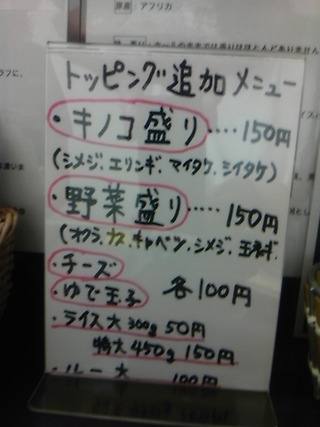 原産：アフリカ
トッピング追加メニュー
・キノコ盛り‥‥150円
(シメジ、エリンギ、マイタケ、シイタケ)
・野菜盛り‥‥‥150円
(オクラ、ナス、キャベツ、シメジ、玉ネギ
・チーズ
・ゆで玉子 各100円
・ライス大300g 50円
特大450g 150円
・ルー大 100円